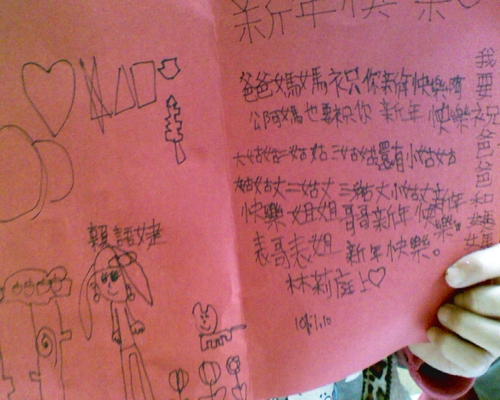 新年快樂♡
爸爸媽媽祝你新年快樂阿
公阿媽也要祝你 新年 快樂
大姑姑二姑姑 三姑姑還有小姑姑
姑姑丈二姑丈 三姑丈小姑丈新年
快樂 姐姐哥哥新年快樂。
表哥表姐 新年快樂。
林莉庭上♡
我要祝爸爸和媽媽
賴語婕